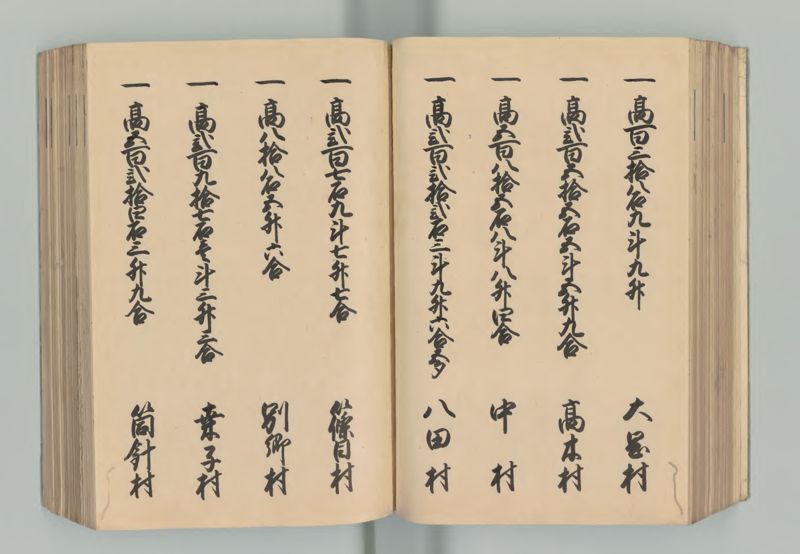 一 高百三拾八石九斗九升 大岡村
一 高弐百五拾五石五斗五升九合 高木村
一 高五百八拾五石八斗八升四合 中村
一 高弐百弐拾弐石三斗九升六合 八田村
一 高弐百七石九斗七升七合 篠目村
一 高八拾八石五升六合 別郷村
一 高弐百九拾七石壱斗三升三合 桑子村
一 高五百弐拾四石三升九合 筒針村